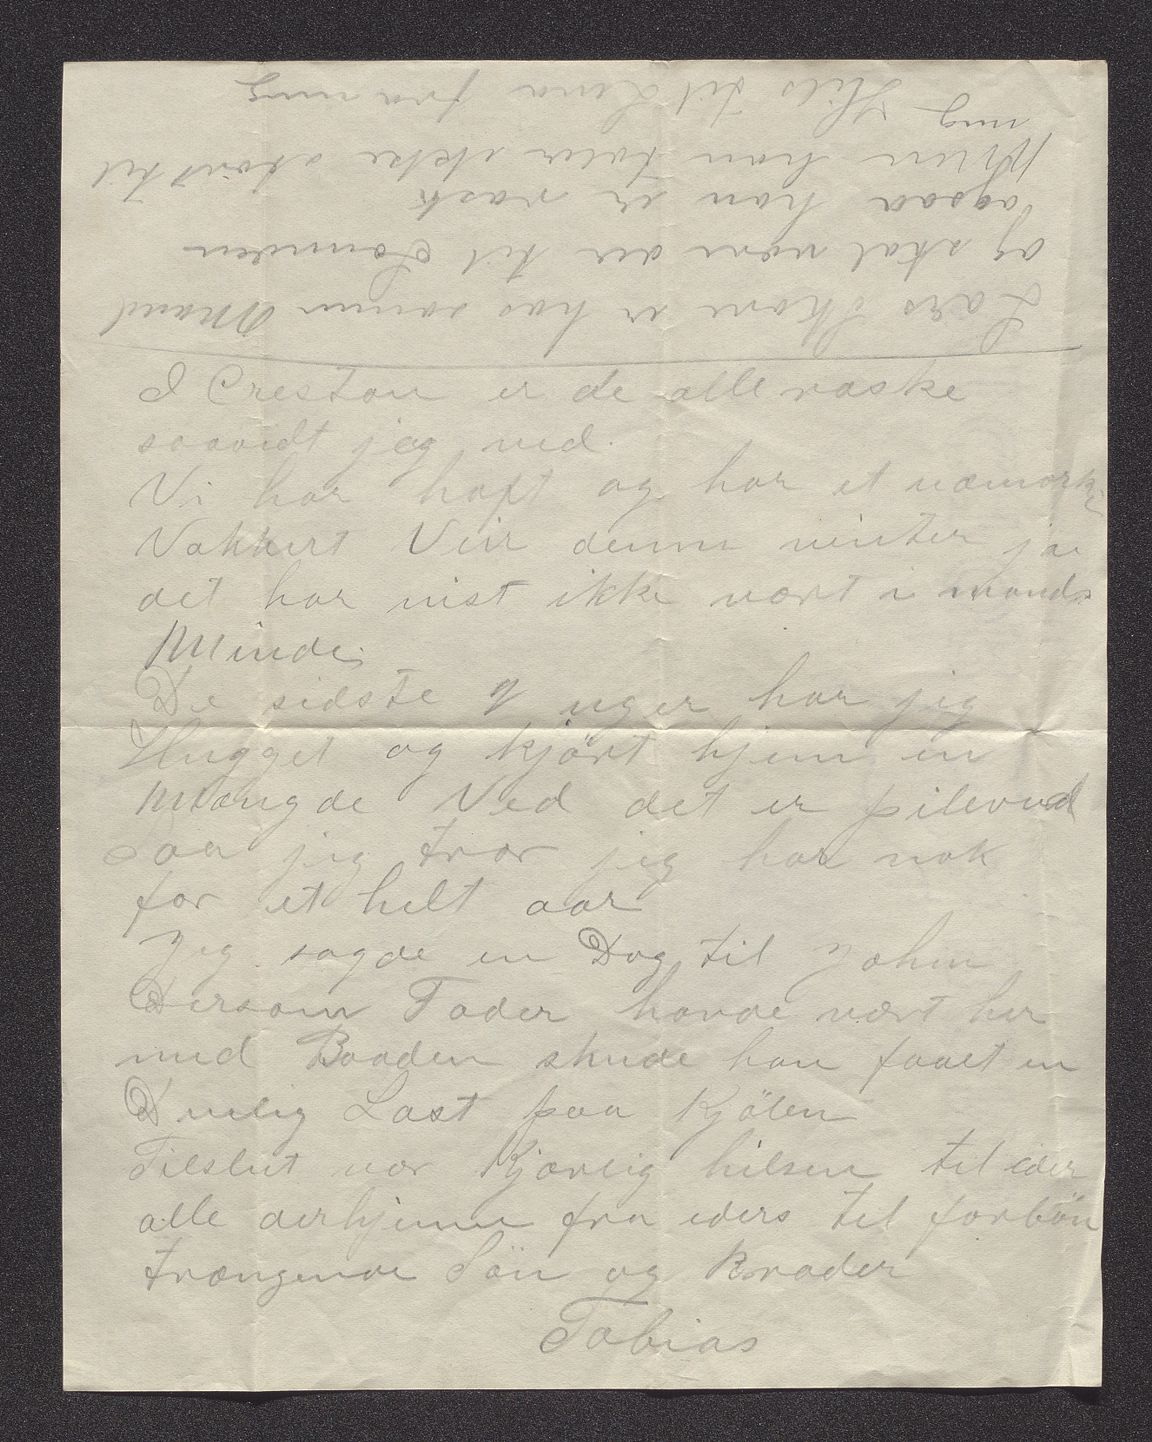 I Creston er de alle raske
saavidt jeg ved.
Vi har haft og har et udmærket
Vakkert Veir denne vinter ja
det har vist ikke vært i mands
Minde.
De sidste 2 uger har jeg
Hugget og kjört hjem en
Mængde Ved det er pileved
saa jeg tror jeg har nok
for et helt aar
Jeg sagde en Dag til John
Dersom Fader havde vært her
med Baaden skude han faaet en
Duelig Last paa Kjölen
Tilslut vær Kjærlig hilsen til eder
alle derhjemme fra eders til forbön
trængende Sön og Broder
Tobias
Lars Skare er hos samme Mand
og skal være der til Sommeren
ogsaa han er rask
Men han taler ikke stort til
mig Hils til Lina fra mig